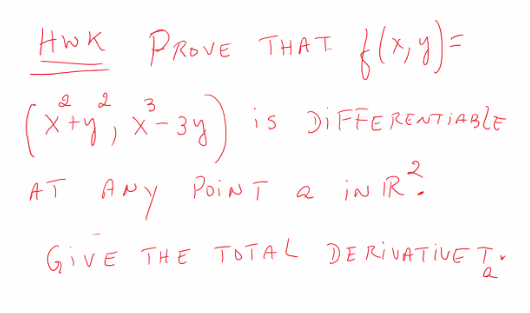 HWK PROVE THAT f(x,y)=
(x²+y², x³-3y) is DiFFERENTiABLE
AT ANY POiNT a iN ℝ².
GiVE THE TOTAL DERiVATiVE Tₐ.